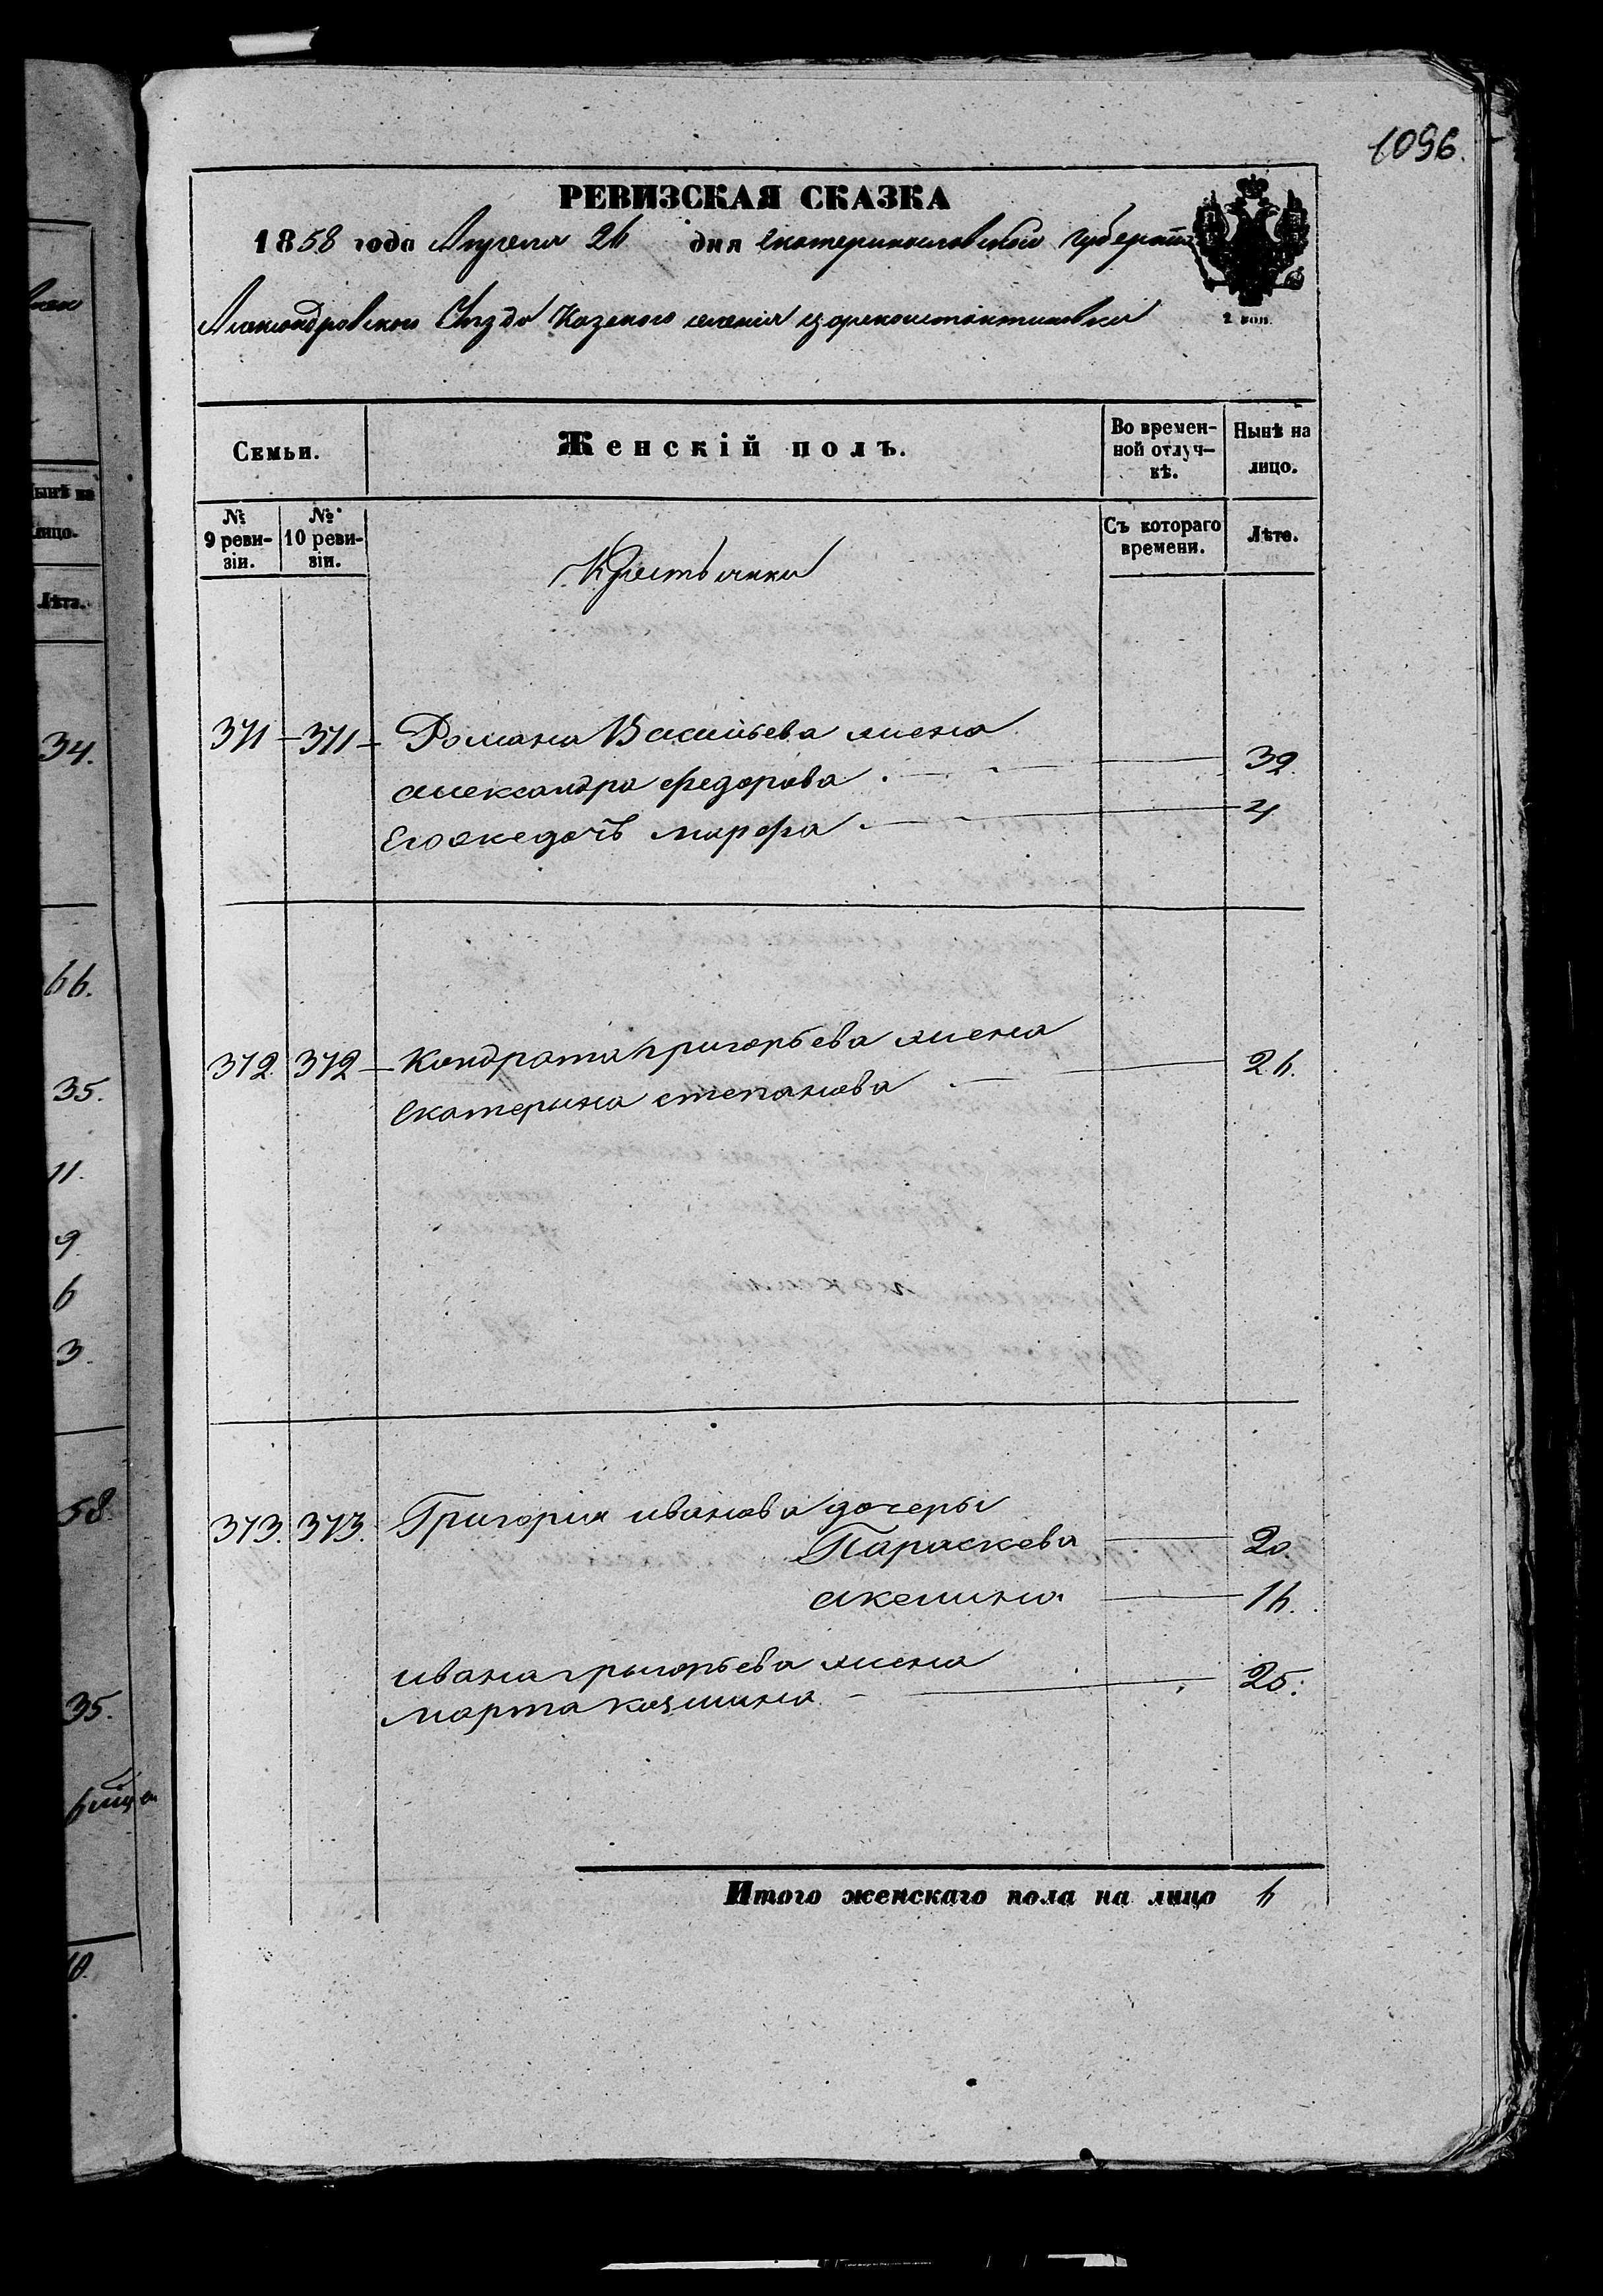 1096.
РЕВИЗСКАЯ СКАЗКА
1858 года Апреля 26 дня Екатеринославской Губерніи
2 коп.
Александровского Уезда Казеного селенія Цареконстантиновки
Семьи. Женскій полъ. Во времен-ной отлуч-кѣ. Нынѣ на лицо.
№ 9 реви-зіи. № 10 реви-зіи. Съ котораго времени. Лѣта.
Крестьянки
371 – 371 – Романа Васильева жена
александра федорова 39.
Его же дочъ марфа 4
372. 372 – Кондрата григорьева жена
Екатерына степанова 26.
373. 373. Григория иванова дочеры
Параскева 20.
акелина 16.
ивана грыгорьева жена
марта козмина 25.
Итого женскаго пола на лицо 6
ынѣ на
лицо.
Лѣта.
34.
66.
35.
11.
9
6
3.
58.
35.
10.